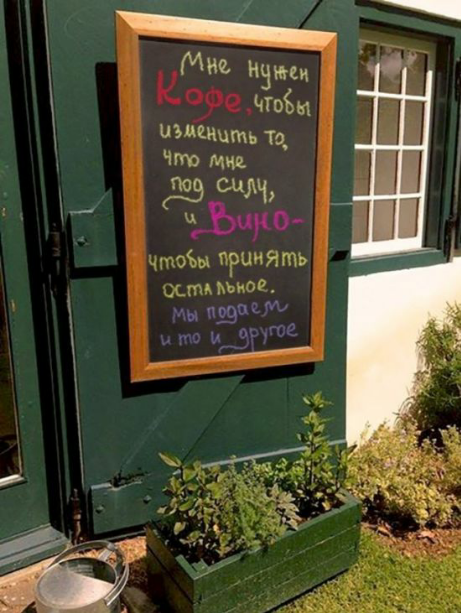 Мне нужен
Кофе, чтобы
изменить то,
что мне
под силу,
и Вино-
чтобы принять
остальное.
Мы подаем
и то и другое